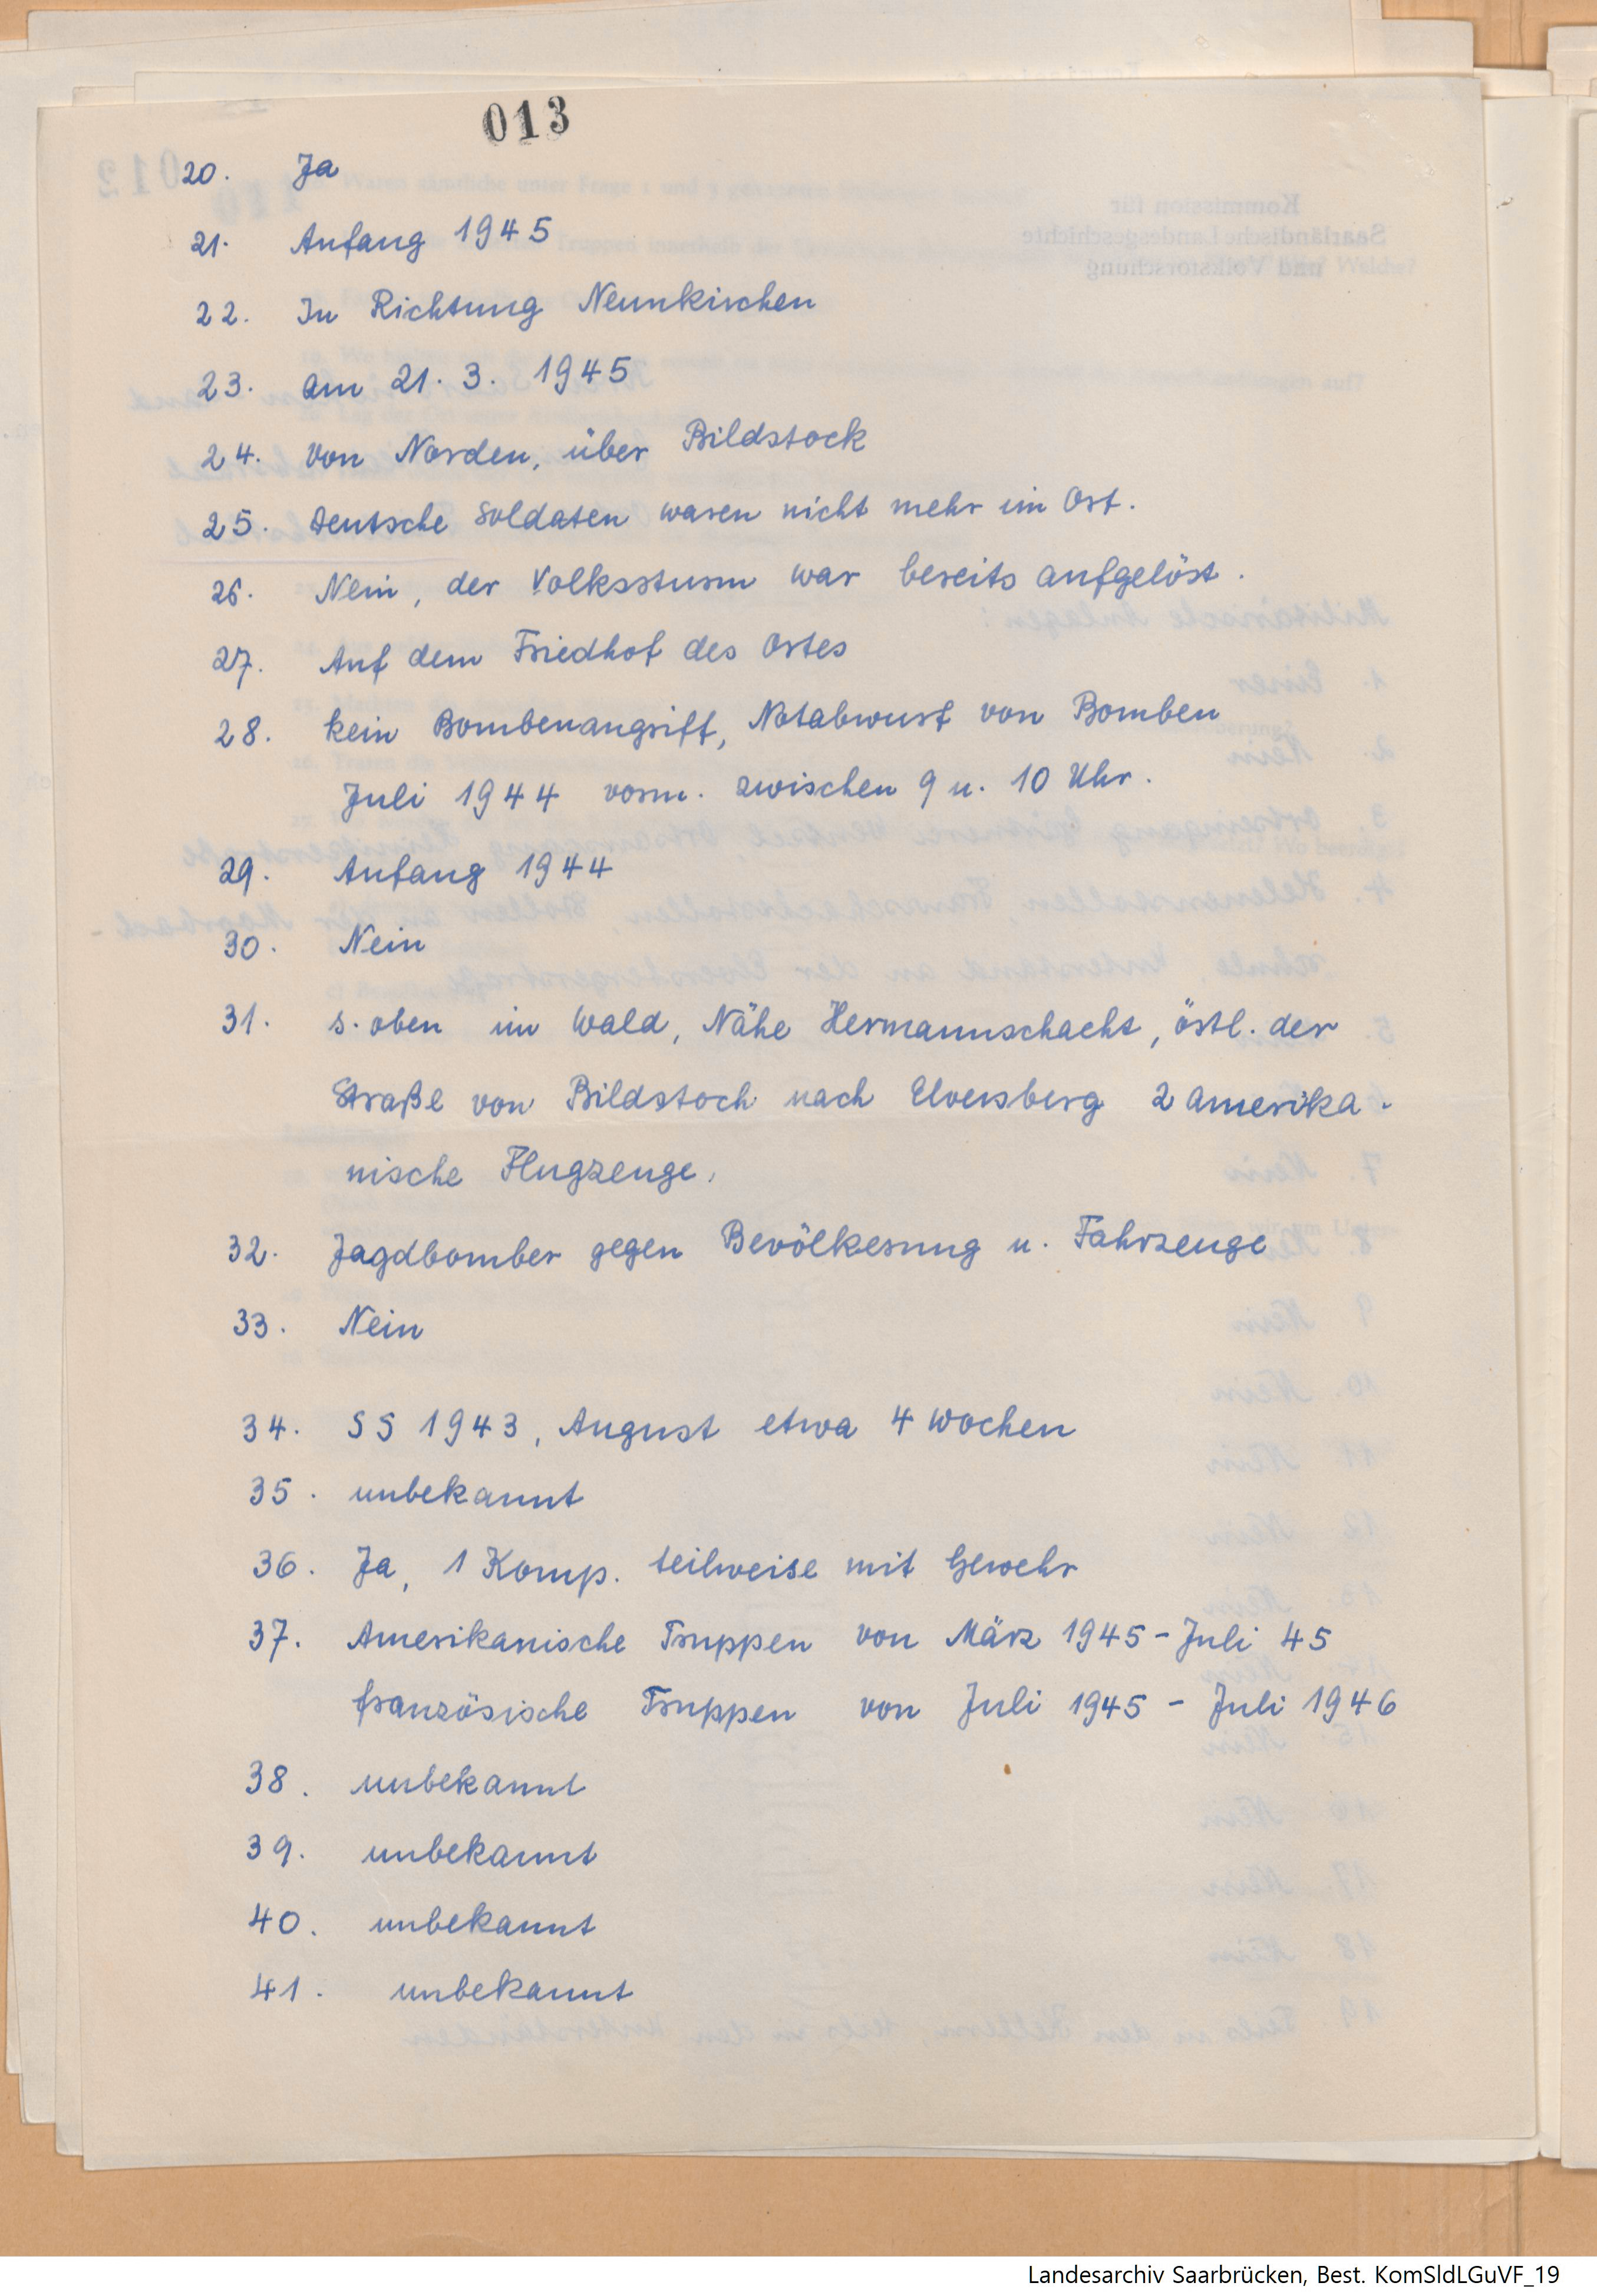 013
20. Ja
21. Anfang 1945
22. In Richtung Neunkirchen
23. am 21. 3. 1945
24. von Norden, über Bildstock
25. Deutsche Soldaten waren nicht mehr im Ort.
26. Nein, der Volkssturm war bereits aufgelöst.
27. Auf dem Friedhof des Ortes
28. kein Bombenangriff, Notabwurf von Bomben
Juli 1944 vorm. zwischen 9 u. 10 Uhr.
29. Anfang 1944
30. Nein
31. s. oben im Wald, Nähe Hermannschacht, östl. der
Straße von Bildstoch nach Elversberg 2 amerika-
nische Flugzeuge.
32. Jagdbomber gegen Bevölkerung u. Fahrzeuge
33. Nein
34. SS 1943, August etwa 4 Wochen
35. unbekannt
36. Ja, 1 Komp. teilweise mit Gewehr
37. Amerikanische Truppen von März 1945 - Juli 45
französische Truppen von Juli 1945 - Juli 1946
38. unbekannt
39. unbekannt
40. unbekannt
41. unbekannt
Landesarchiv Saarbrücken, Best. KomSldLGuVF_19